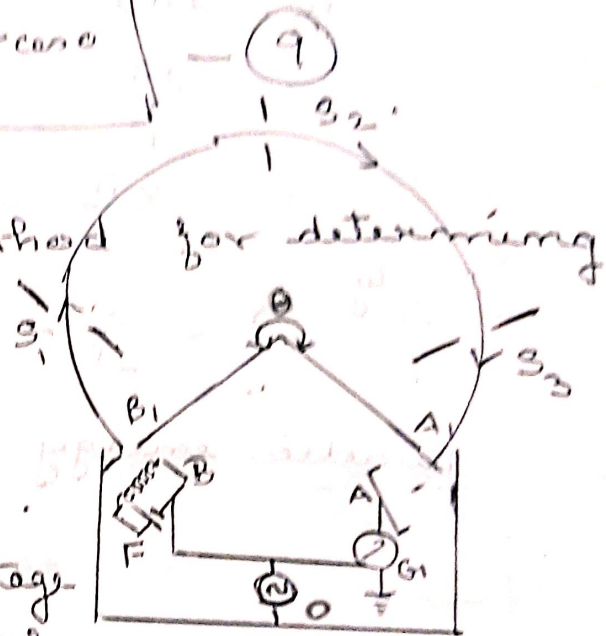 case
9
S2
hod for determining
S1
θ
S3
B1
A1
B
A
F
G1
O